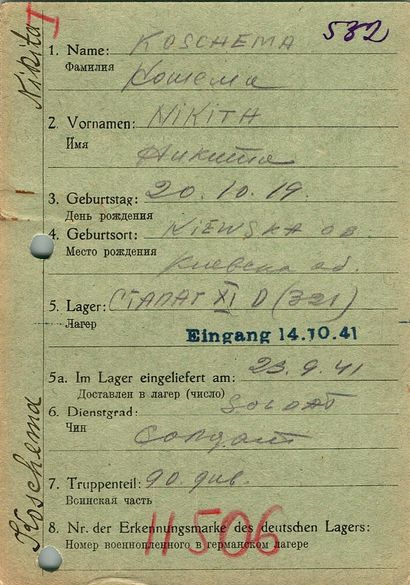 I
582
Nikita
Koschema
1. Name: KOSCHEMA
Фамилия Кошема
2. Vornamen: NIKITA
Имя
Никита
3. Geburtstag: 20.10.19.
День рождения
4. Geburtsort: KIEWSKA OB.
Место рождения
Киевска об.
5. Lager: СТАЛАГ XI D (321)
Лагер
Eingang 14.10.41
5a. Im Lager eingeliefert am: 23.9.41
Доставлен в лагер (число)
6. Dienstgrad: SOLDAT
Чин
Солдат
7. Truppenteil: 90. див.
Воинская часть
8. Nr. der Erkennungsmarke des deutschen Lagers:
Номер военнопленного в германском лагере
11506